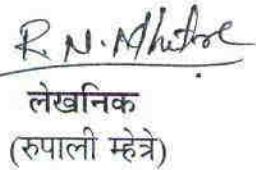 R. N. Mhetre
लेखनिक
(रुपाली म्हेत्रे)